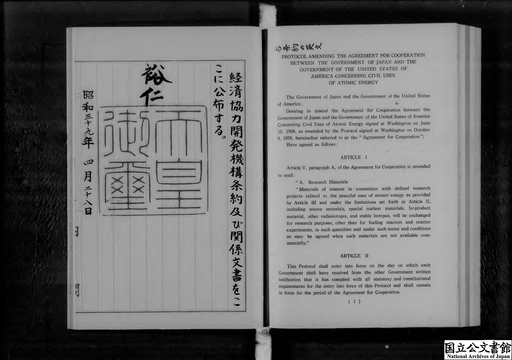 経済協力開発機構条約及び関係文書をこ
こに公布する。
裕仁
天皇
御璽
昭和三十九年四月二十八日
PROTOCOL AMENDING THE AGREEMENT FOR COOPERATION
BETWEEN THE GOVERNMENT OF JAPAN AND THE
GOVERNMENT OF THE UNITED STATES OF
AMERICA CONCERNING CIVIL USES
OF ATOMIC ENERGY
The Government of Japan and the Government of the United States
of America;
Desiring to amend the Agreement for Cooperation between the
Government of Japan and the Government of the United States of America
Concerning Civil Uses of Atomic Energy signed at Washington on June
16, 1958, as amended by the Protocol signed at Washington on October
9, 1958, hereinafter referred to as the "Agreement for Cooperation";
Have agreed as follows:
ARTICLE I
Article V, paragraph A, of the Agreement for Cooperation is amended
to read:
"A. Research Materials
"Materials of interest in connection with defined research
projects related to the peaceful uses of atomic energy as provided
by Article III and under the limitations set forth in Article II,
including source materials, special nuclear materials, by-product
material, other radioisotopes, and stable isotopes, will be exchanged
for research purposes, other than for fueling reactors and reactor
experiments, in such quantities and under such terms and conditions
as may be agreed when such materials are not available com-
mercially."
ARTICLE II
This Protocol shall enter into force on the day on which each
Government shall have received from the other Government written
notification that it has complied with all statutory and constitutional
requirements for the entry into force of this Protocol and shall remain
in force for the period of the Agreement for Cooperation.
( 1 )
国立公文書館
National Archives of Japan